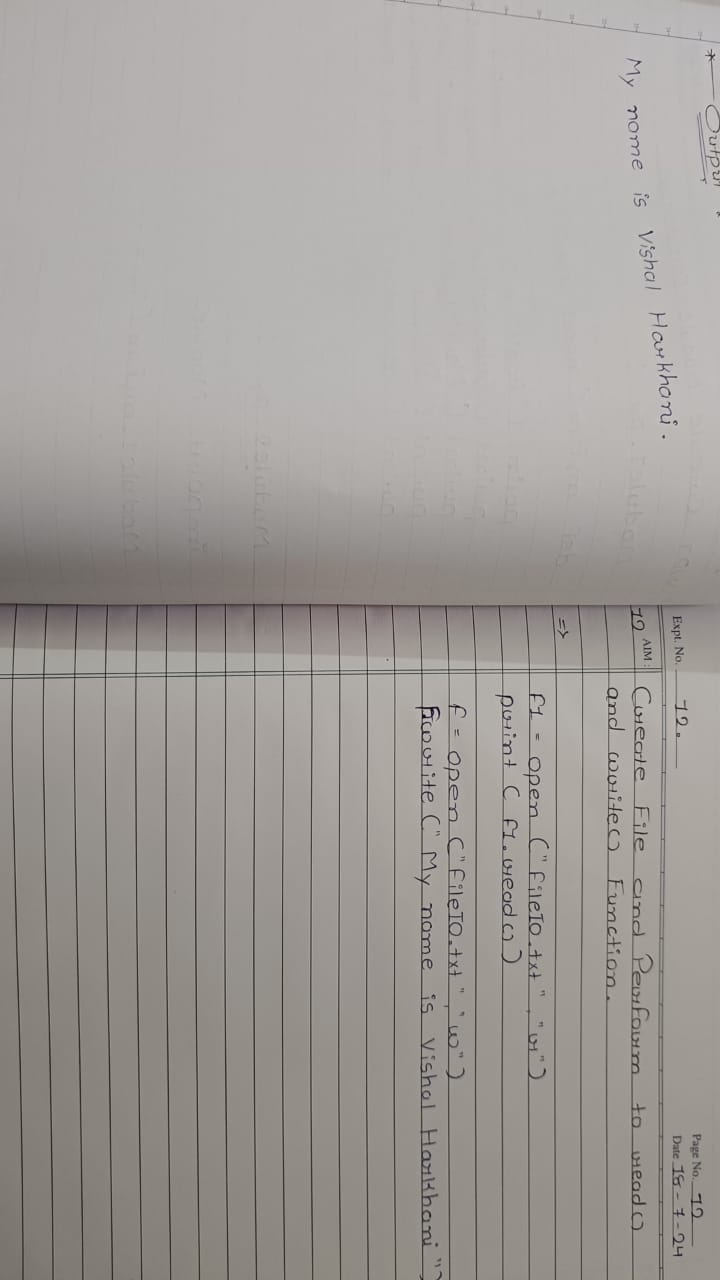 * Output
My name is Vishal Harkhani.
Expt. No. 12.
Page No. 12
Date 18-7-24
12 AIM: Create File and Perform to read()
and write() Function.
=>
f1 = open ("fileIO.txt", "r")
print ( f1.read())
f = open ("fileIO.txt", "w")
f.write (" My name is Vishal Harkhani ")